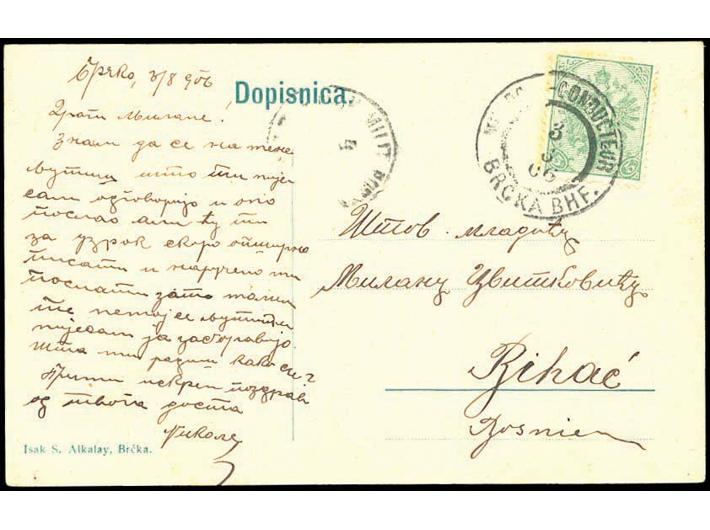 Брчко, 3/8 906
Dopisnica.
Драги Милане!
Знам да се на мене
љутиш што ти није
сам одговорио и оно
послао али ћу ти
за узрок скоро опширно
писати и наручено ти
послати зато молим
те немој се љутити
нијесам ја заборавио
Шта ми радиш како си?
Прими искрен поздрав
од твога
Николе
Isak S. Alkalay, Brčka.
MILIT
4
CONDUCTEUR
3
06
BRČKA BHF.
Штов. младићу
Милану Цвитковићу
Bihać
Bosnien